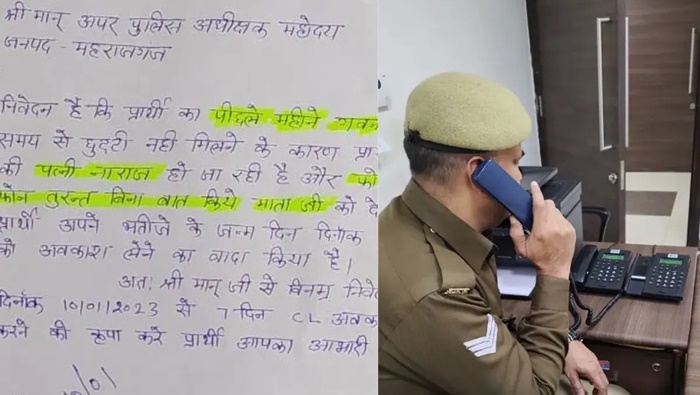 श्री मान् अपर पुलिस अधीक्षक महोदय
जनपद - महराजगंज
निवेदन है कि प्रार्थी का पीछले महीने
समय से छुट्टी नही मिलने के कारण
की पत्नी नाराज हो जा रही है और
फोन तुरन्त बिना बात किये माता जी को
प्रार्थी अपने भतीजे के जन्म दिन दिनांक
को अवकाश लेने का वादा किया है।
अतः श्री मान् जी से विनम्र
दिनांक 10/01/2023 से 7 दिन CL
करने की कृपा करे प्रार्थी आपका आभारी